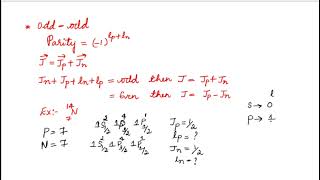 * odd - odd
Parity = (-1)^{lp+ln}
J⃗ = J⃗p + J⃗n
Jn + Jp + ln + lp = odd then J = Jp + Jn
= Even then J = Jp - Jn
l
S → 0
P → 1
Ex:- ¹⁴₇N
P = 7 1S²₁/₂ 1P⁴₃/₂ 1P¹₁/₂ Jp = 1/2
lp = ?
N = 7 1S²₁/₂ 1P⁴₃/₂ 1P¹₁/₂ Jn = 1/2
ln = ?